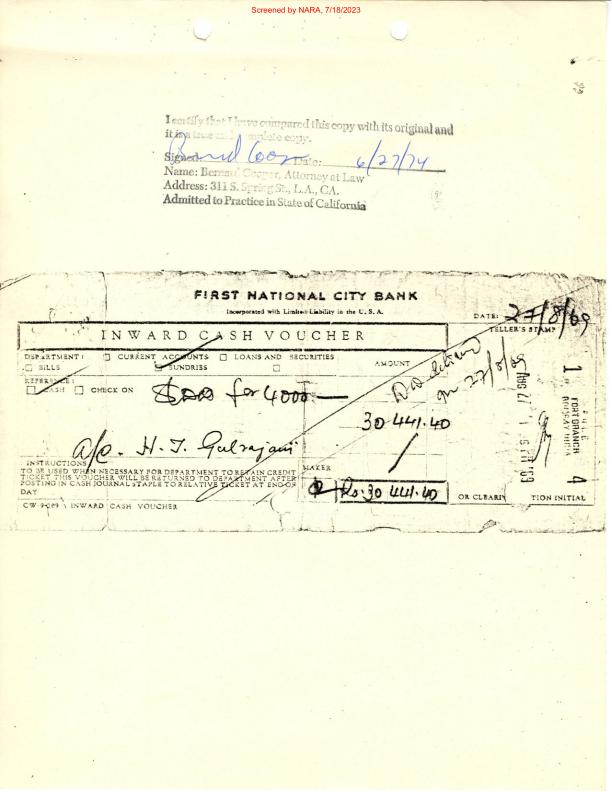 Screened by NARA, 7/18/2023
I certify that I have compared this copy with its original and
it is a true and complete copy.
Signed: Date: 6/27/74
Name: Bernard Cooper, Attorney at Law
Address: 311 S. Spring St., L.A., CA.
Admitted to Practice in State of California
FIRST NATIONAL CITY BANK
Incorporated with Limited Liability in the U.S.A.
DATE: 27/8/69
TELLER'S STAMP
INWARD CASH VOUCHER
DEPARTMENT: CURRENT ACCOUNTS LOANS AND SECURITIES
BILLS SUNDRIES
AMOUNT
REFERENCE:
CASH CHECK ON for 4000 —
on 27/8/69
30 441.40
a/c. H. T. Gulrajani
INSTRUCTIONS
TO BE USED WHEN NECESSARY FOR DEPARTMENT TO RETAIN CREDIT
TICKET THIS VOUCHER WILL BE RETURNED TO DEPARTMENT AFTER
POSTING IN CASH JOURNAL STAPLE TO RELATIVE TICKET AT END OF
DAY
MAKER
Rs. 30 441.40
OR CLEARI TION INITIAL
CW 9-(69) INWARD CASH VOUCHER
AUG 27 69
1 4
FORT BRANCH
BOMBAY INDIA